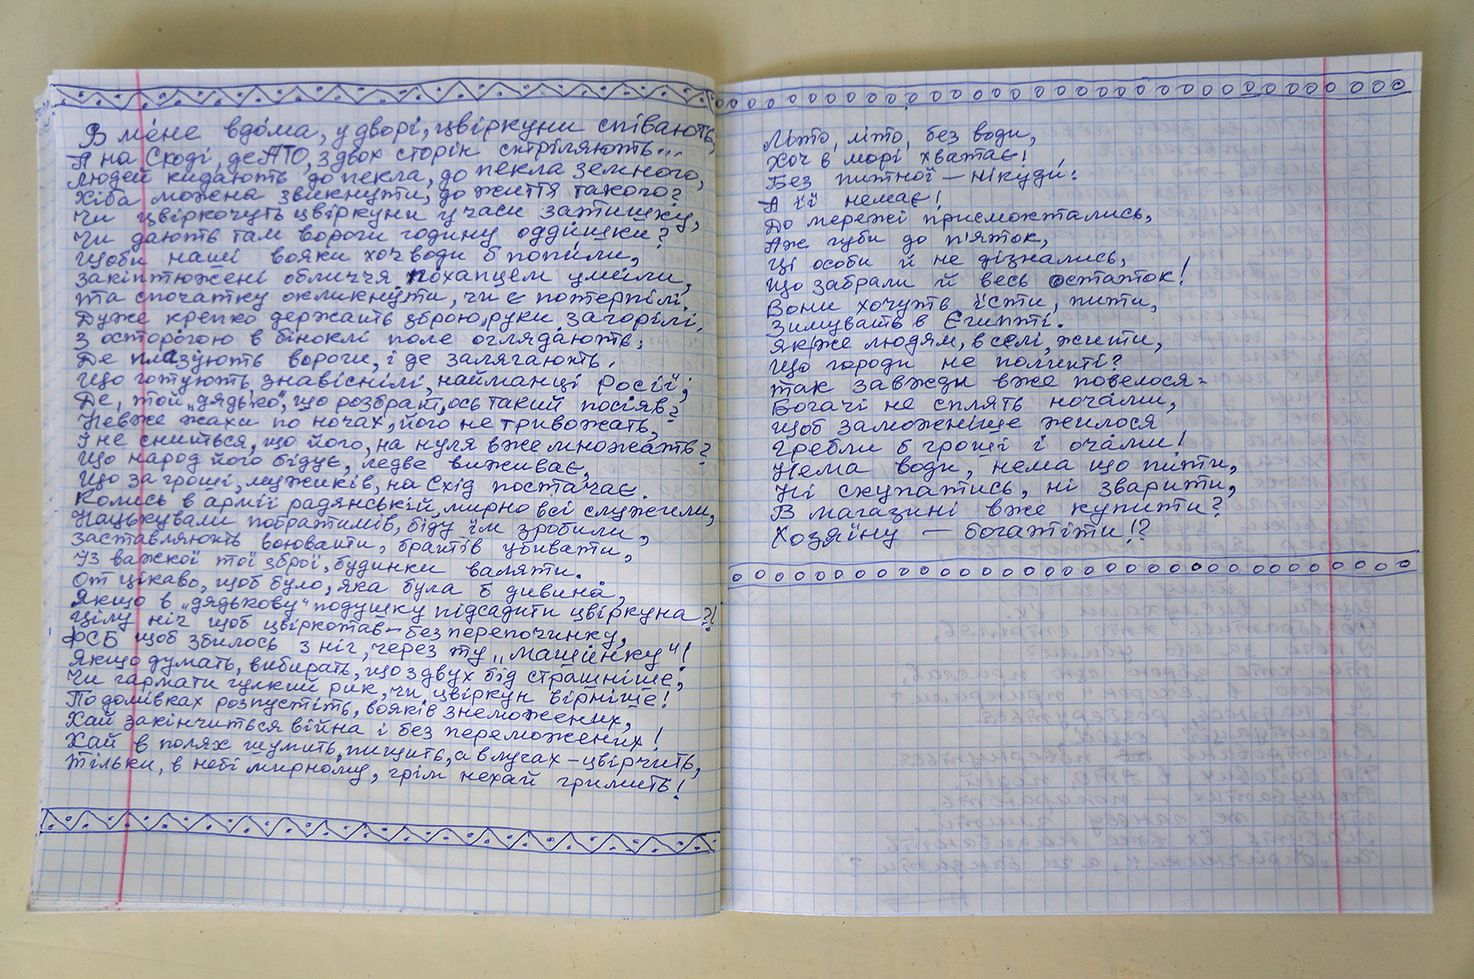 В мене вдома, у дворі, цвіркуни співають,
А на Сході, де АТО, з двох сторін стріляють...
Людей кидають до пекла, до пекла земного,
Хіба можена звикнути, до життя такого?
Чи цвіркочуть цвіркуни у часи затишку,
Чи дають там вороги годину оддишки?
Щоби наші вояки хоч води б попили,
Закіптюжені обличчя, похапцем умили,
Та спочатку окликнути, чи є потерпілі.
Дуже крепко держать зброю, руки загорілі,
З осторогою в біноклі поле оглядають,
Де плазують вороги, і де залягають.
Що готують знавіснілі, найманці Росії;
Де, той „дядько", що розбрат, ось такий посіяв?
Невже жахи по ночах, його не тривожать,
І не сниться, що його, на нуля вже множать?
Що народ його бідує, ледве виживає,
Що за гроші, мужиків, на Схід постачає.
Колись в армії радянській, мирно всі служили,
Нацькували побратимів, біду їм зробили,
Заставляють воювати, братів убивати,
Із важкої тої зброї, будинки валяти.
От цікаво, щоб було, яка була б дивина,
Якщо в „дядькову" подушку підсадити цвіркуна?!
Цілу ніч щоб цвіркотав – без перепочинку,
ФСБ щоб збилось з ніг, через ту „машинку"!
Якщо думать, вибирать, що з двох бід страшніше;
Чи гармати гулкий рик, чи, цвіркун вірніше!
По домівках розпустіть, вояків знеможених,
Хай закінчиться війна і без переможених!
Хай в полях шумить, пищить, а в лугах – цвірчить,
Тільки, в небі мирному, грім нехай гримить!
Літо, літо, без води,
Хоч в морі хватає!
Без питної – нікуди:
А її немає!
До мережі присмоктались,
Аж губи до п'яток,
Ці особи й не дізнались,
Що забрали й весь остаток!
Вони хочуть їсти, пити,
Зимувать в Єгипті.
Як же людям, в селі, жити,
Що городи не политі?
Так завжди вже повелося –
Богачі не сплять ночами,
Щоб заможніще жилося
Гребли б гроші і очами!
Нема води, нема що пити,
Ні скупатись, ні зварити,
В магазині вже купити?
Хозяїну – богатіти!?